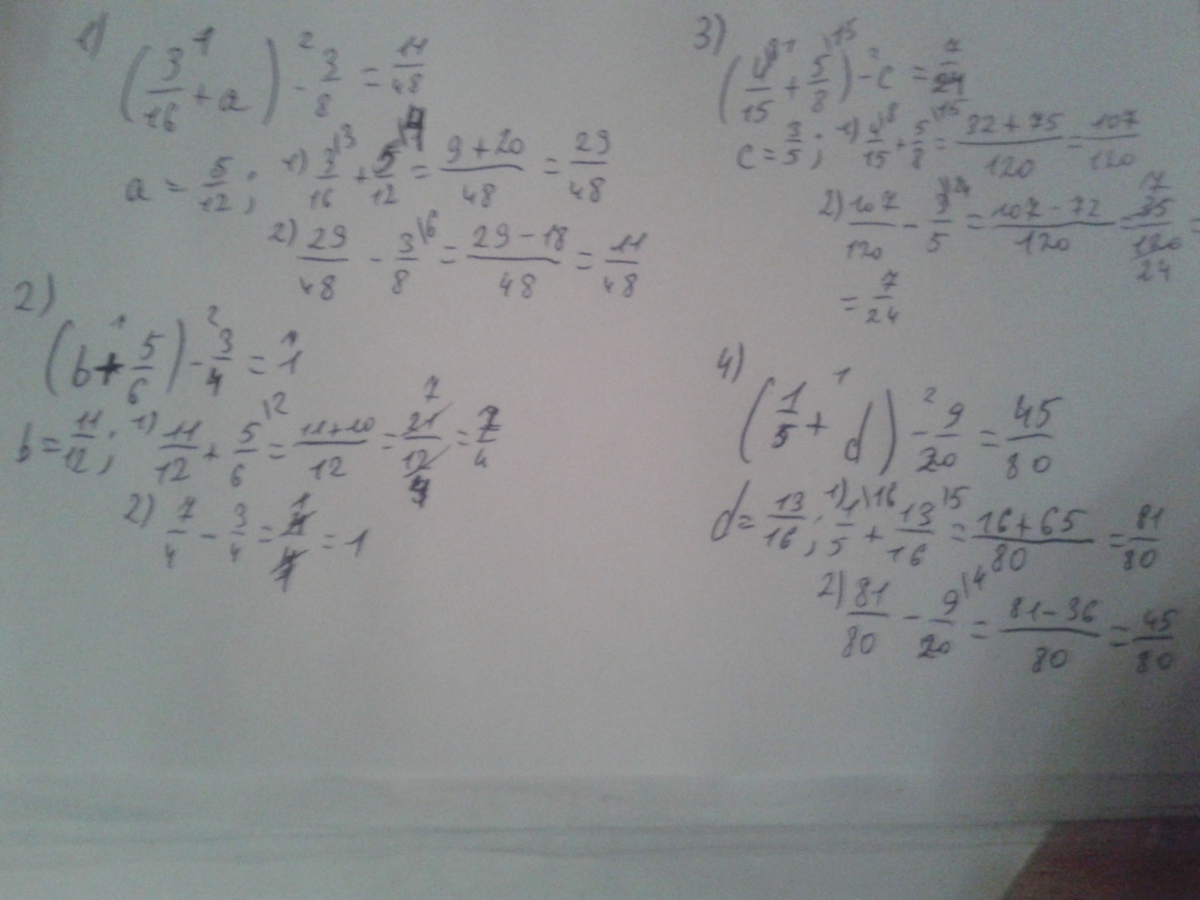 1)
(3/16 + a) - 3/8 = 11/48
a = 5/12; 1) 3/16\3 + 5/12\4 = 9+20/48 = 29/48
2) 29/48 - 3/8\6 = 29-18/48 = 11/48
2)
(b + 5/6) - 3/4 = 1
b = 11/12; 1) 11/12 + 5/6\2 = 11+10/12 = 21/12 = 7/4
2) 7/4 - 3/4 = 4/4 = 1
3)
(4/15\8 + 5/8\15) - c = 7/24
c = 3/5; 1) 4/15\8 + 5/8\15 = 32+75/120 = 107/120
2) 107/120 - 3/5\24 = 107-72/120 = 35/120 =
= 7/24
4)
(1/5 + d) - 9/20 = 45/80
d = 13/16; 1) 1/5\16 + 13/16\5 = 16+65/80 = 81/80
2) 81/80 - 9/20\4 = 81-36/80 = 45/80